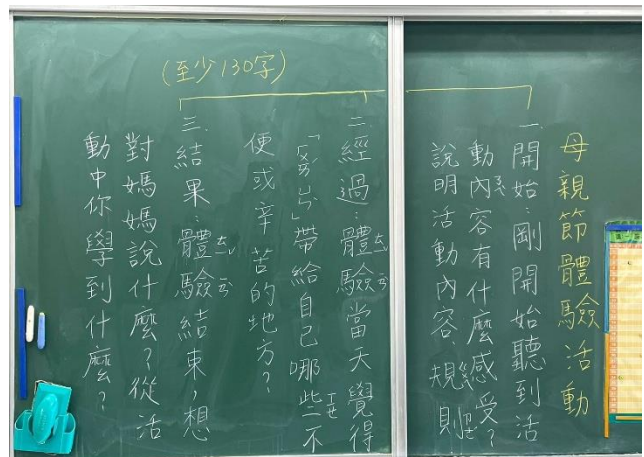 母親節體驗活動
一.開始:剛開始聽到活
動內容有什麼感受?
說明活動內容、規則
(至少130字)
二.經過:體驗當天覺得
「」帶給自己哪些不
便或辛苦的地方?
三.結果:體驗結束,想
對媽媽說什麼?從活
動中你學到什麼?